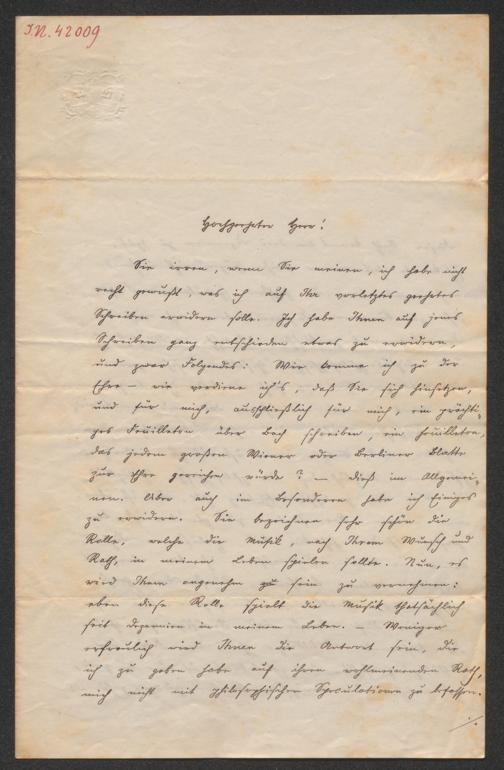 I.N. 42009
Hochgeehrter Herr!
Sie irren, wenn Sie meinen, ich habe nicht
recht gewußt, was ich auf Ihr vorletztes geehrtes
Schreiben erwidern solle. Ich habe Ihnen auf jenes
Schreiben ganz entschieden etwas zu erwidern,
und zwar Folgendes: Wie komme ich zu der
Ehre – wie verdiene ich's, daß Sie sich hinsetzen,
und für mich, ausschließlich für mich, ein prächti-
ges Feuilleton über Bach schreiben, ein Feuilleton,
das jedem großen Wiener oder Berliner Blatte
zur Ehre gereichen würde? – dieß im Allgemei-
nen. Aber auch im Besonderen habe ich Einiges
zu erwidern. Sie bezeichnen sehr schön die
Rolle, welche die Musik, nach Ihrem Wunsch und
Rath, in meinem Leben spielen sollte. Nun, es
wird Ihnen angenehm zu sein zu vernehmen:
eben diese Rolle spielt die Musik thatsächlich
seit Dezennien in meinem Leben. – Weniger
erfreulich wird Ihnen die Antwort sein, die
ich zu geben habe auf ihren wohlmeinenden Rath,
mich nicht mit philosophischen Speculationen zu befassen.
./.